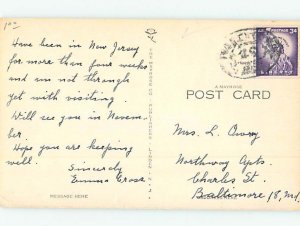 Have been in New Jersey
for more than four weeks
and am not through
yet with visiting.
Will see you in Novem-
ber.
Hope you are keeping
well.
Sincerely
Emma Cross
MESSAGE HERE
3¢
LIBERTY
POST CARD
Mrs. L. Avery
Northway Apts.
Charles St.
Baltimore 18, Md.